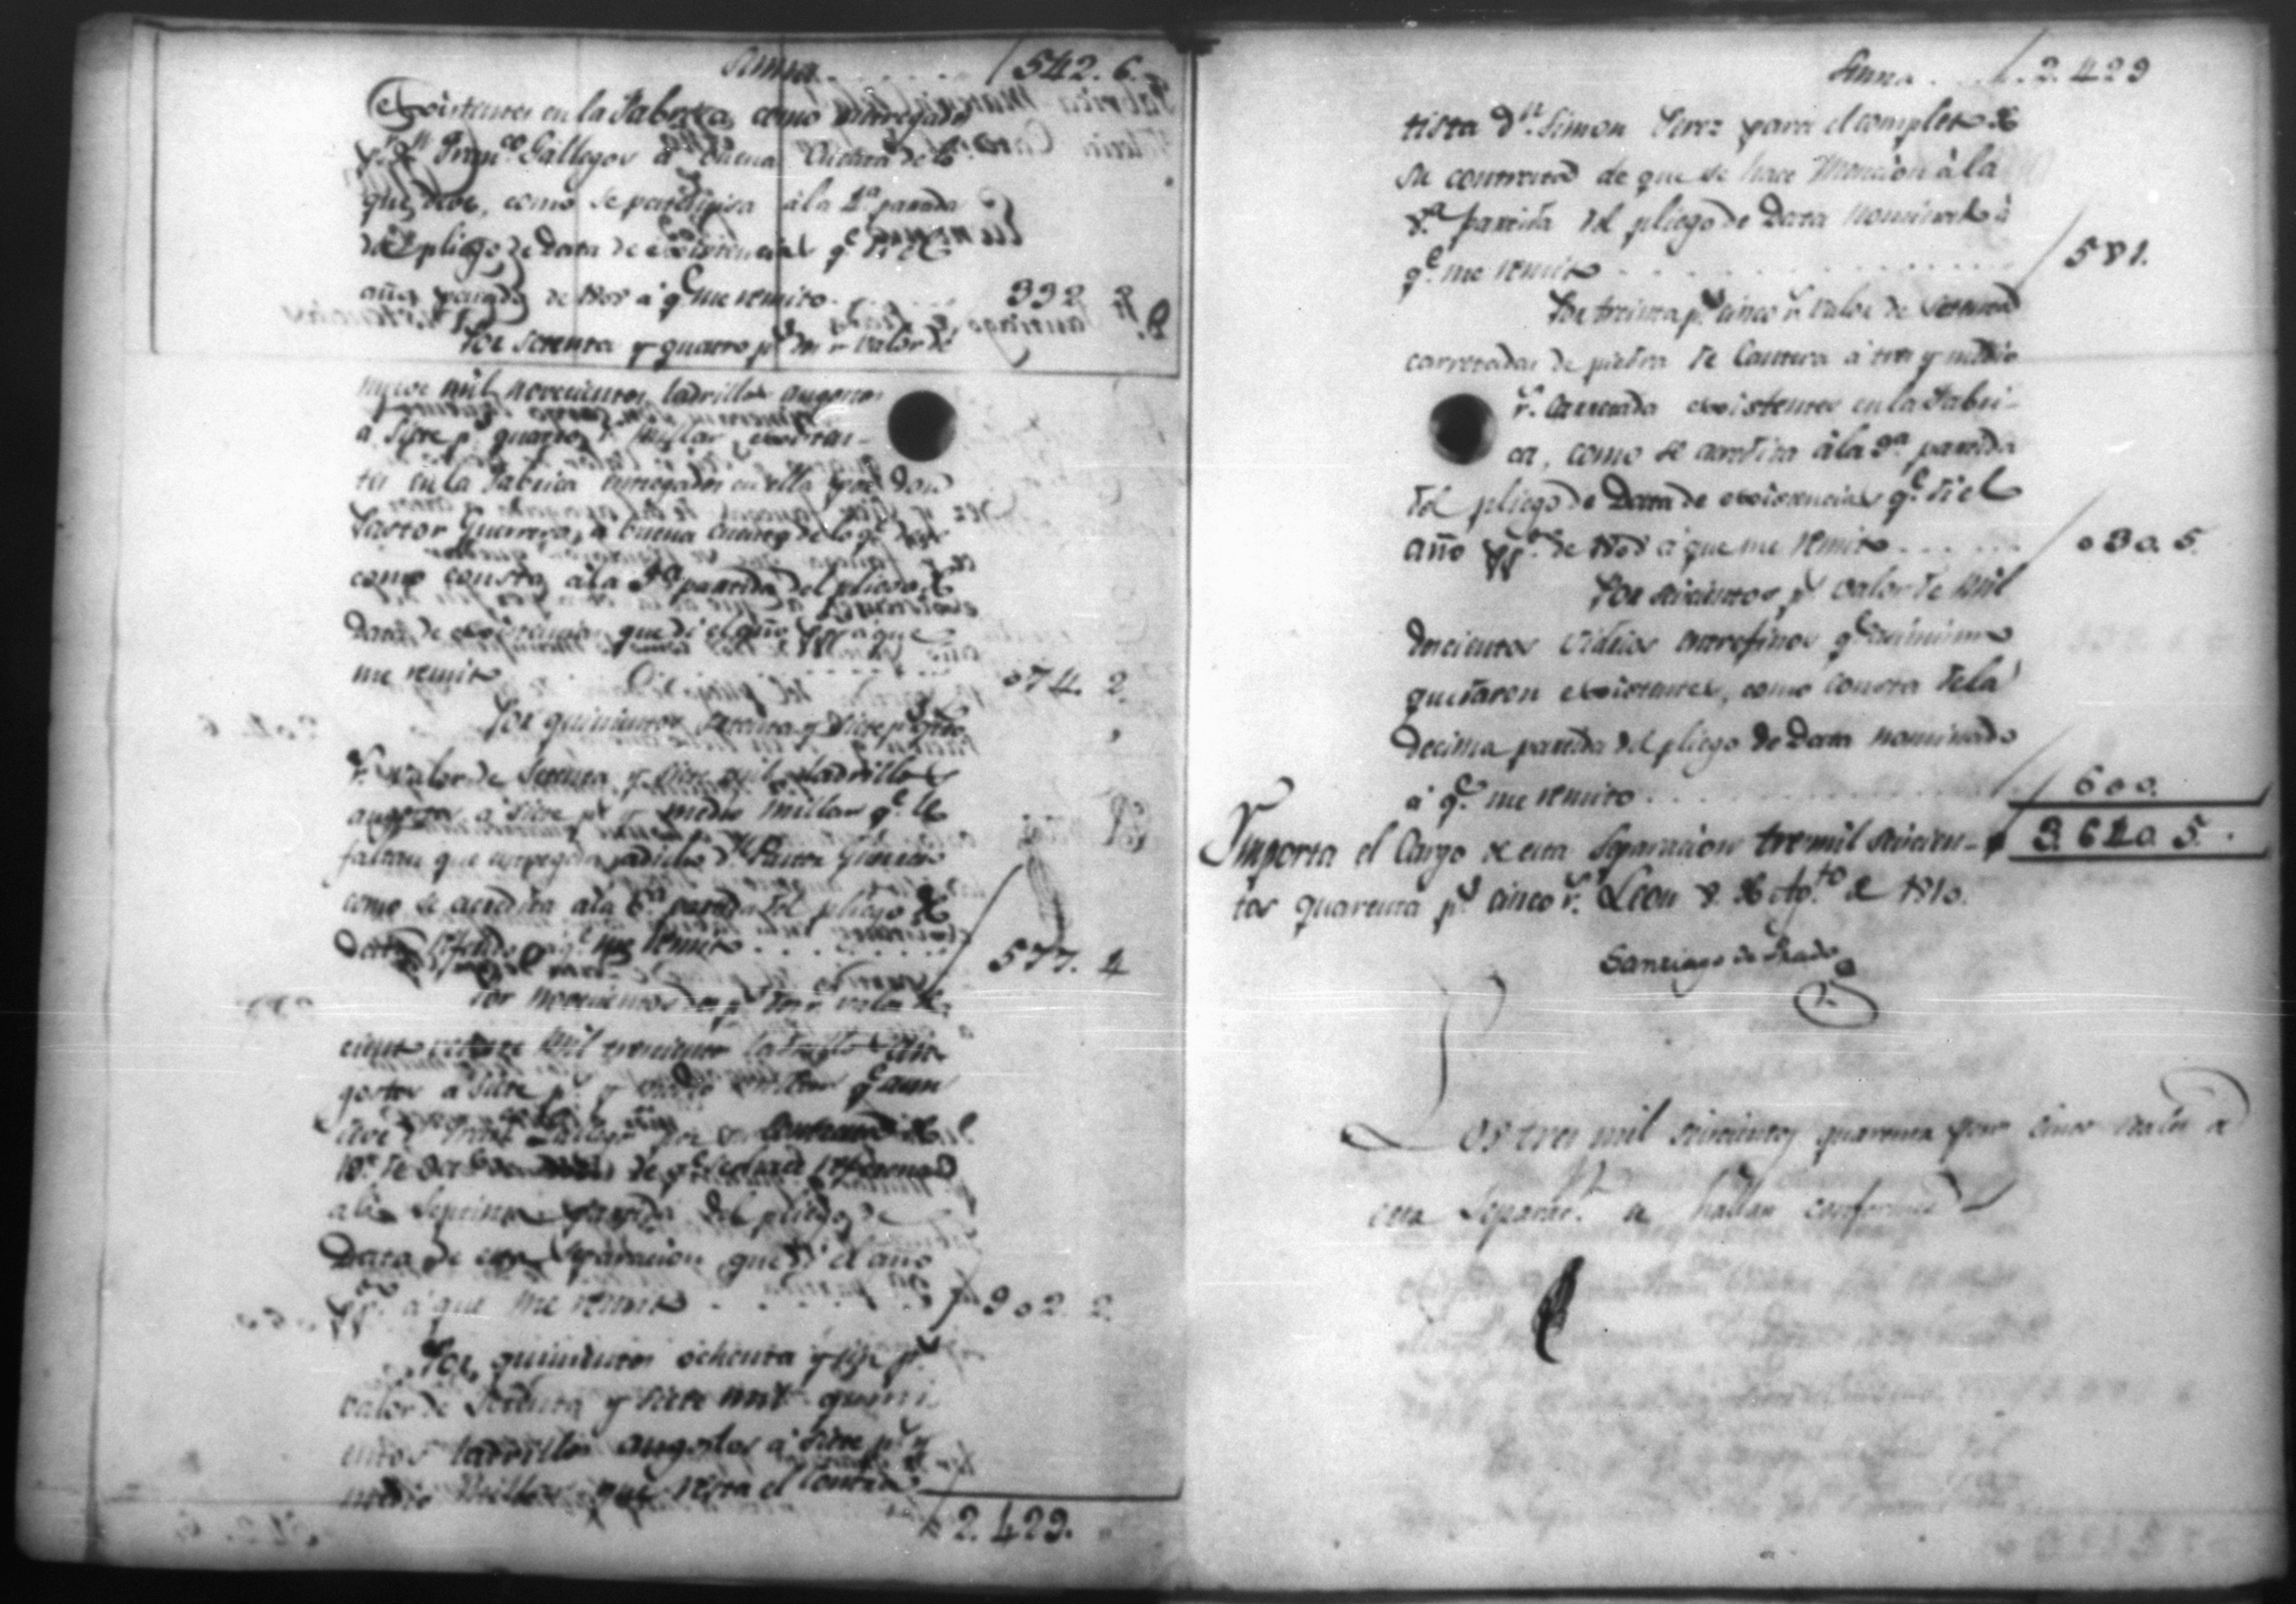 Suma . . . . . . 542. 6.
Existentes en la Fabrica, como entregados
p.r D.n Fran.co Gallegos à buena Cuenta de lo
que debe, como se participa àla 2.a partida
del pliego de Data de existencias q.e di el
año pasado de 1808 a q.e me remito . . . . 332 2
Por setenta y quatro p.s dos r.s valor de
nueve mil novecientos ladrillos angostos
a siete p.s quatro r.s millar, existen-
tes en la Fabrica entregados en ella por Don
Pastor Guerrero, a buena cuenta de lo q.e debe
como consta àla 3.a partida del pliego de
Data de existencias que di el año pp.o a que
me remito . . . . . . 074. 2.
Por quinientos setenta y siete p.s quatro
r.s valor de setenta y siete mil ladrillos
angostos a siete p.s y medio millar q.e le
faltan que entregar a dicho D.n Pastor Guerrero
como se acredita ala 6.a partida del pliego de
Data referido a q.e me remito . . . . . . 577. 4
Por novecientos dos p.s dos r.s valor de
ciento veinte mil trecientos ladrillos an-
gostos a siete p.s y medio millar q.e aun
debe D.n Fran.co Gallegos por su contrata de
10 de de q.e se hace
ala septima partida del pliego de
Data de esta Separacion que di el año
pp.o a que me remito . . . . . . 902. 2.
Por quinientos ochenta y un p.s
valor de setenta y siete mil quini
entos ladrillos angostos a siete p.s y
medio millar que resta el Contra-
2.429.
Suma . . . . 2.429
tista D.n Simon Perez para el completo de
su contrata de que se hace mencion à la
8.a partida del pliego de Data nominado à
q.e me remito . . . . . . 581.
Por treinta p.s cinco r.s valor de setenta
carretadas de piedra de Cantera à tres y medio
r.s carretada existentes en la Fabri-
ca, como se acredita àla 9.a partida
del pliego de Data de existencias q.e di el
año pp.o de 1808 à que me remito . . . . . . 030. 5.
Por seicientos p.s valor de mil
docientos vidrios entrefinos q.e asimismo
quedaron existentes, como consta dela
Decima partida del pliego de Data nominado
à q.e me remito . . . . . . 600.
Importa el Cargo de esta Separacion tres mil seicien- 3.640. 5.
tos quarenta p.s cinco r.s Leon 8. de Ag.to de 1810.
Santiago de Prado
Los tres mil seicientos quarenta pesos cinco reales de
esta Separac.n se hallan conformes